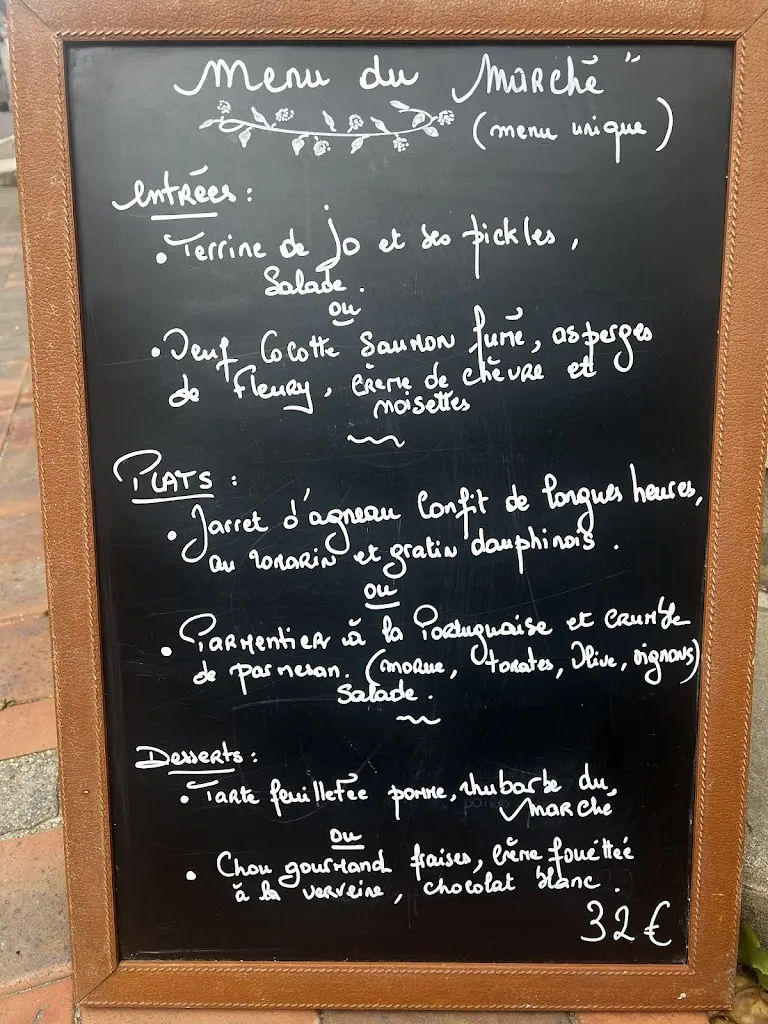 Menu du Marché"
(menu unique)
Entrées :
• Terrine de jo et ses pickles,
Salade.
ou
• Oeuf Cocotte Saumon fumé, asperges
de Fleury, crème de chèvre et
noisettes
Plats :
• Jarret d'agneau Confit de longues heures,
au romarin et gratin dauphinois.
ou
• Parmentier à la Portuguaise et crumble
de parmesan. (morue, tomates, Olive, oignons)
Salade.
Desserts :
• Tarte feuilletée pomme, rhubarbe du
Marché
ou
• Chou gourmand fraises, crème fouettée
à la verveine, chocolat blanc.
32 €